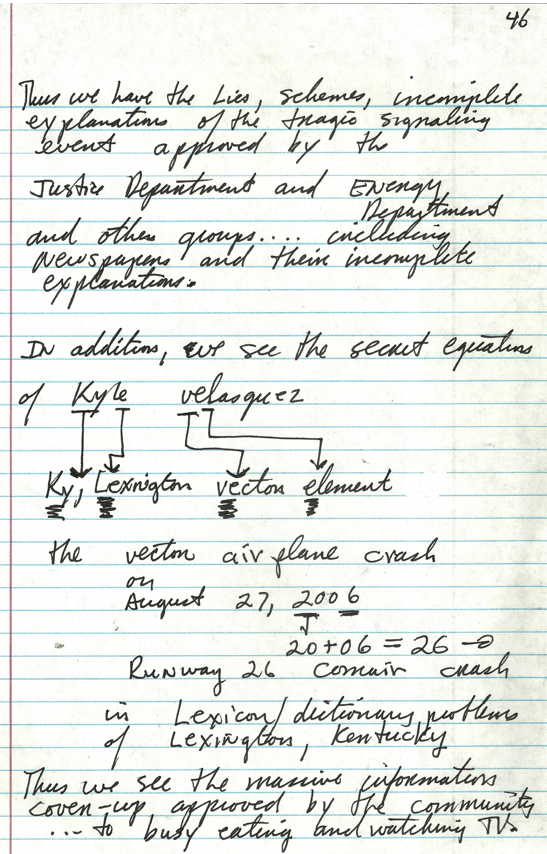 46
Thus we have the Lies, schemes, incomplete
explanations of the tragic signaling
event approved by the
Justice Department and ENergy
Department
and other groups.... including
Newspapers and their incomplete
explanations.
IN addition, we see the secret equation
of Kyle velasquez
Ky, Lexington vector element
the vector air plane crash
on
August 27, 2006
20+06 = 26 →
RUNway 26 Comair crash
in Lexicon/dictionary problems
of Lexington, Kentucky
Thus we see the massive information
cover-up approved by the community
... to busy eating and watching TV.